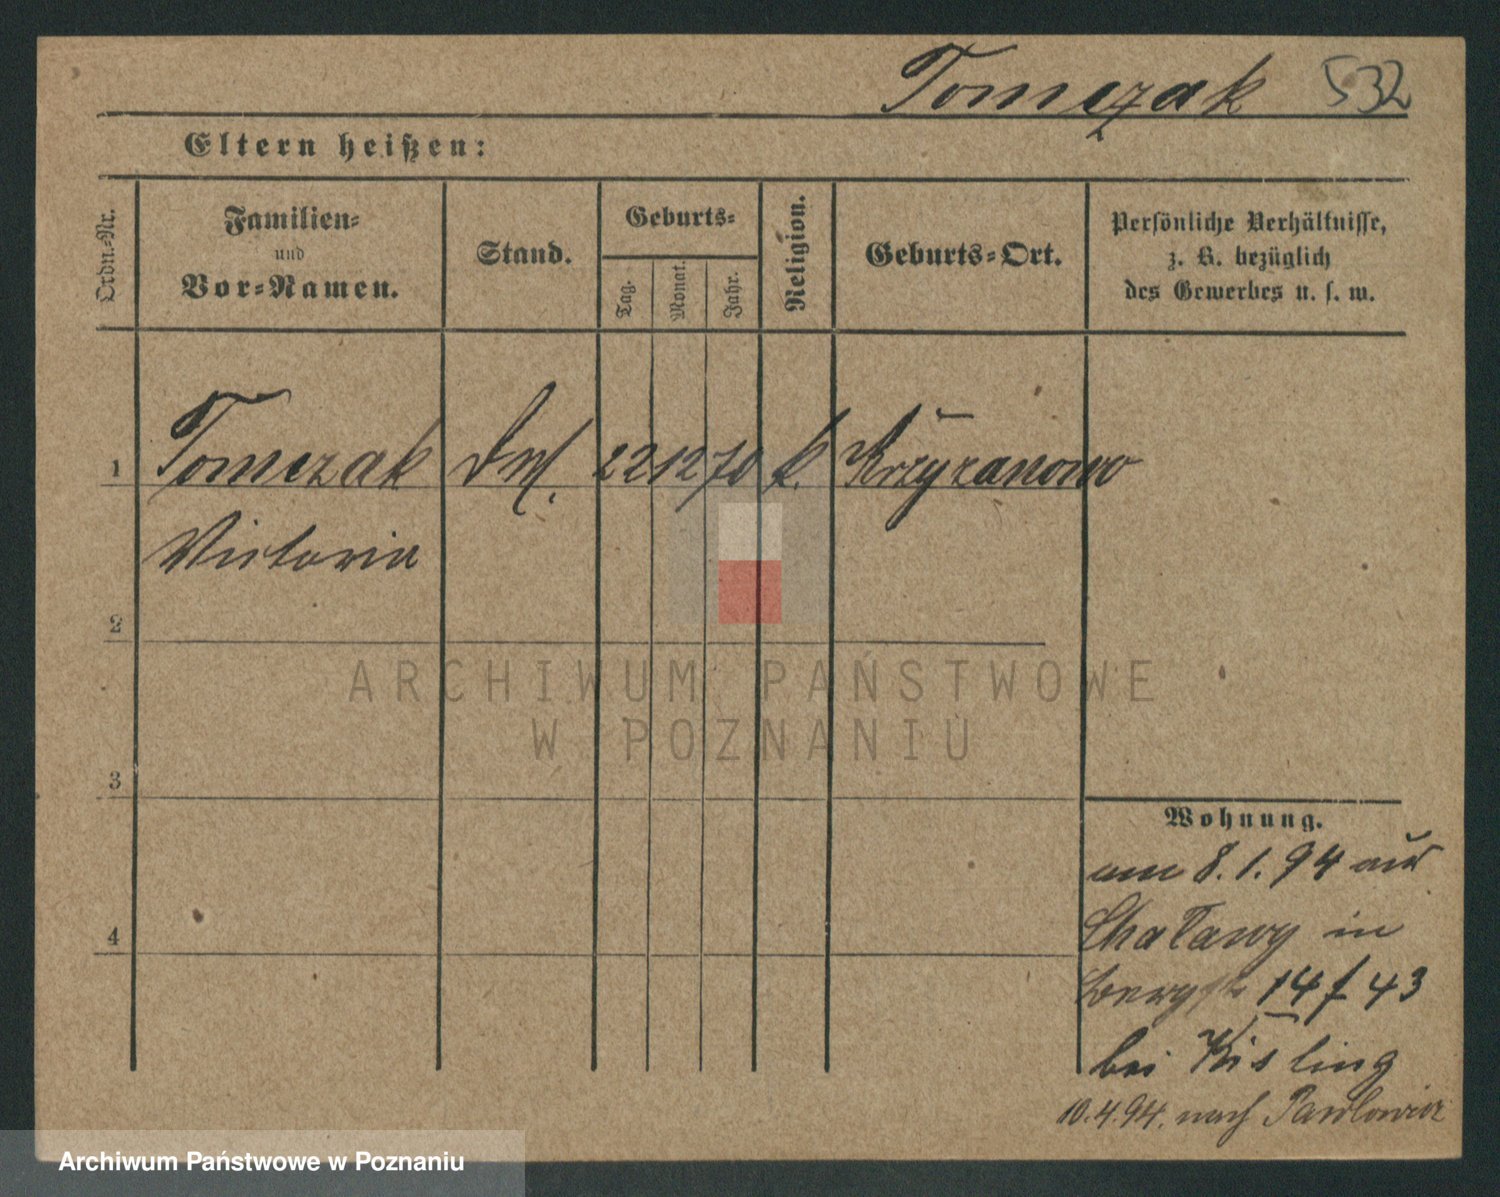 Tomczak 532
Eltern heißen:
Ordn=Nr.
Familien=
und
Vor=Namen.
Stand.
Geburts=
Tag.
Monat.
Jahr.
Religion.
Geburts=Ort.
Persönliche Verhältnisse,
z. B. bezüglich
des Gewerbes u. s. w.
1 Tomczak 22 12 70 k. Krzyzanowo
Victoria
2
3
4
Wohnung.
am 8.1.94 aus
Chalawy in
Bergstr 14 f 43
bei Kisling
10.4.94. nach Pawlowice
ARCHIWUM PAŃSTWOWE
W POZNANIU
Archiwum Państwowe w Poznaniu